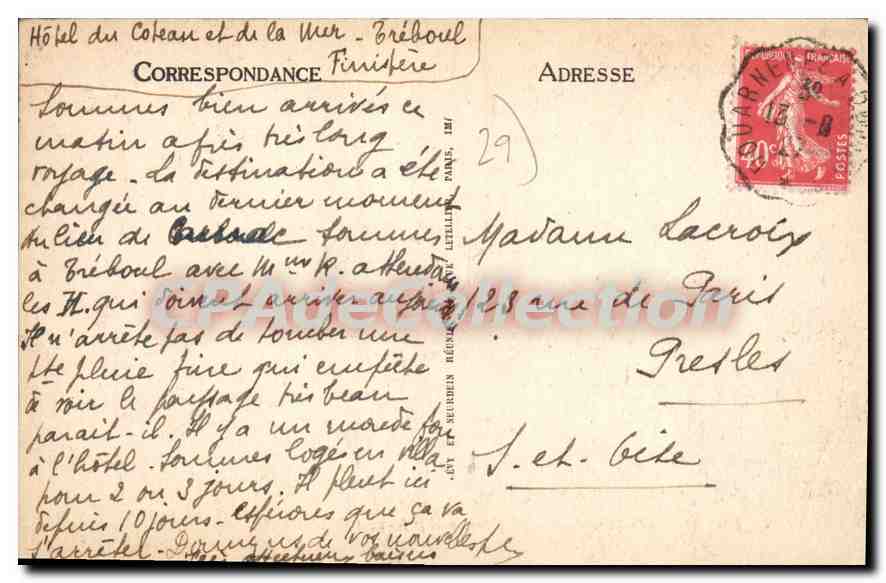 Hôtel du Coteau et de la Mer - Tréboul
Finistère
CORRESPONDANCE
Sommes bien arrivés ce
matin après très long
voyage. La destination a été
changée au dernier moment
Au lieu de sommes
à Tréboul avec Mme R. attendons
les H. qui doivent arriver au
Il n'arrête pas de tomber une
pte pluie fine qui empêche
de voir le paysage très beau
parait-il. Il y a un monde fou
à l'hôtel. Sommes logés en villa
pour 2 ou 3 jours. Il pleut ici
depuis 10 jours. espérons que ça va
s'arrêter. Donnez ns de vos nouvelles
Très affectueux baisers
LEVY ET NEURDEIN RÉUNIS LETELLIER, PARIS, IMP
ADRESSE
29
RÉPUBLIQUE FRANÇAISE
40c
POSTES
DOUARNENEZ A
13 - 8
Madame Lacroix
123 rue de Paris
Presles
S. et. Oise
CPADeCollection.com